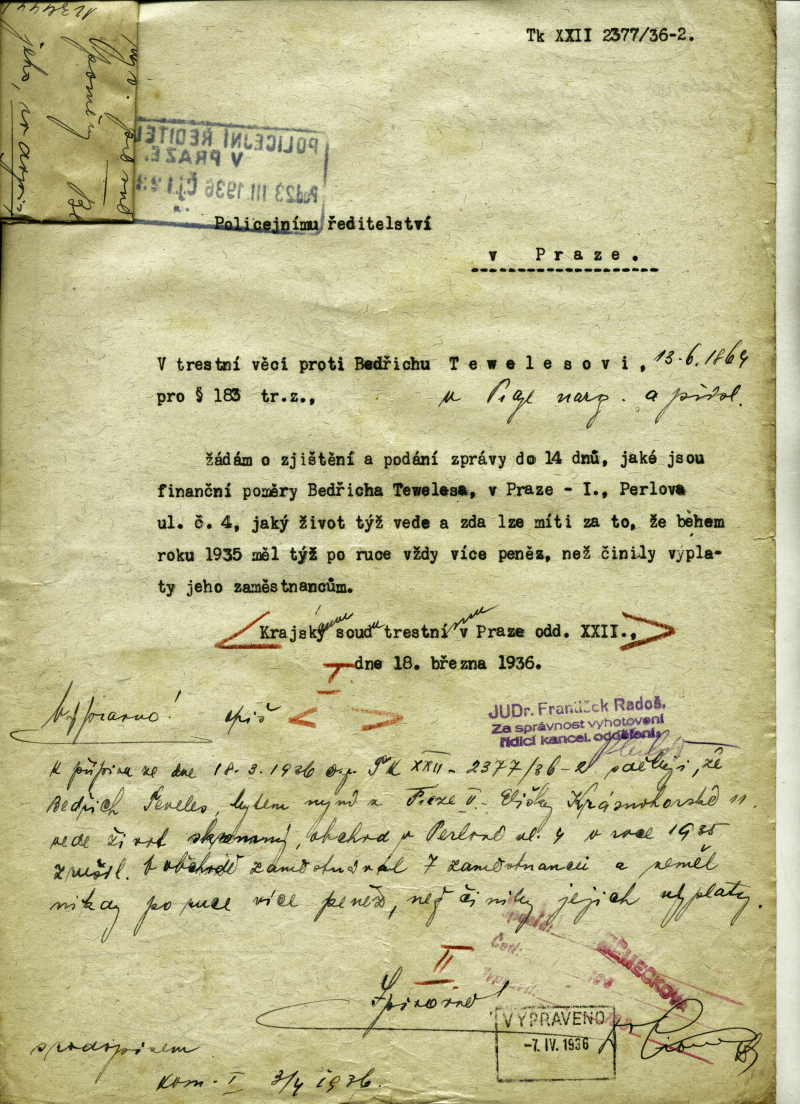 Tk XXII 2377/36-2.
POLICEJNÍ ŘEDITEL
V PRAZE.
23 III 1936
Policejnímu ředitelství
v Praze.
V trestní věci proti Bedřichu Tewelesovi, 13.6.1864
pro § 183 tr.z.,
žádám o zjištění a podání zprávy do 14 dnů, jaké jsou
finanční poměry Bedřicha Tewelesa, v Praze - I., Perlova
ul. č. 4, jaký život týž vede a zda lze míti za to, že během
roku 1935 měl týž po ruce vždy více peněz, než činily výpla-
ty jeho zaměstnancům.
Krajský soud trestní v Praze odd. XXII.,
dne 18. března 1936.
spis
JUDr. František Radoš.
Za správnost vyhotovení
řídící kancel. oddělení,
K přípisu ze dne 18.3.1936 Tk XXII - 2377/36-2 sděluji, že
Bedřich Teveles, bytem nyní v Praze V. Elišky Krásnohorské 11.
vede život skromný, obchod v Perlové ul. 4 v roce 1935
zrušil. V obchodě zaměstnával 7 zaměstnanců a neměl
nikdy po ruce více peněz, než činily jejich výplaty.
II
VYPRAVENO
-7. IV. 1936
kom. I 3/4 1936.